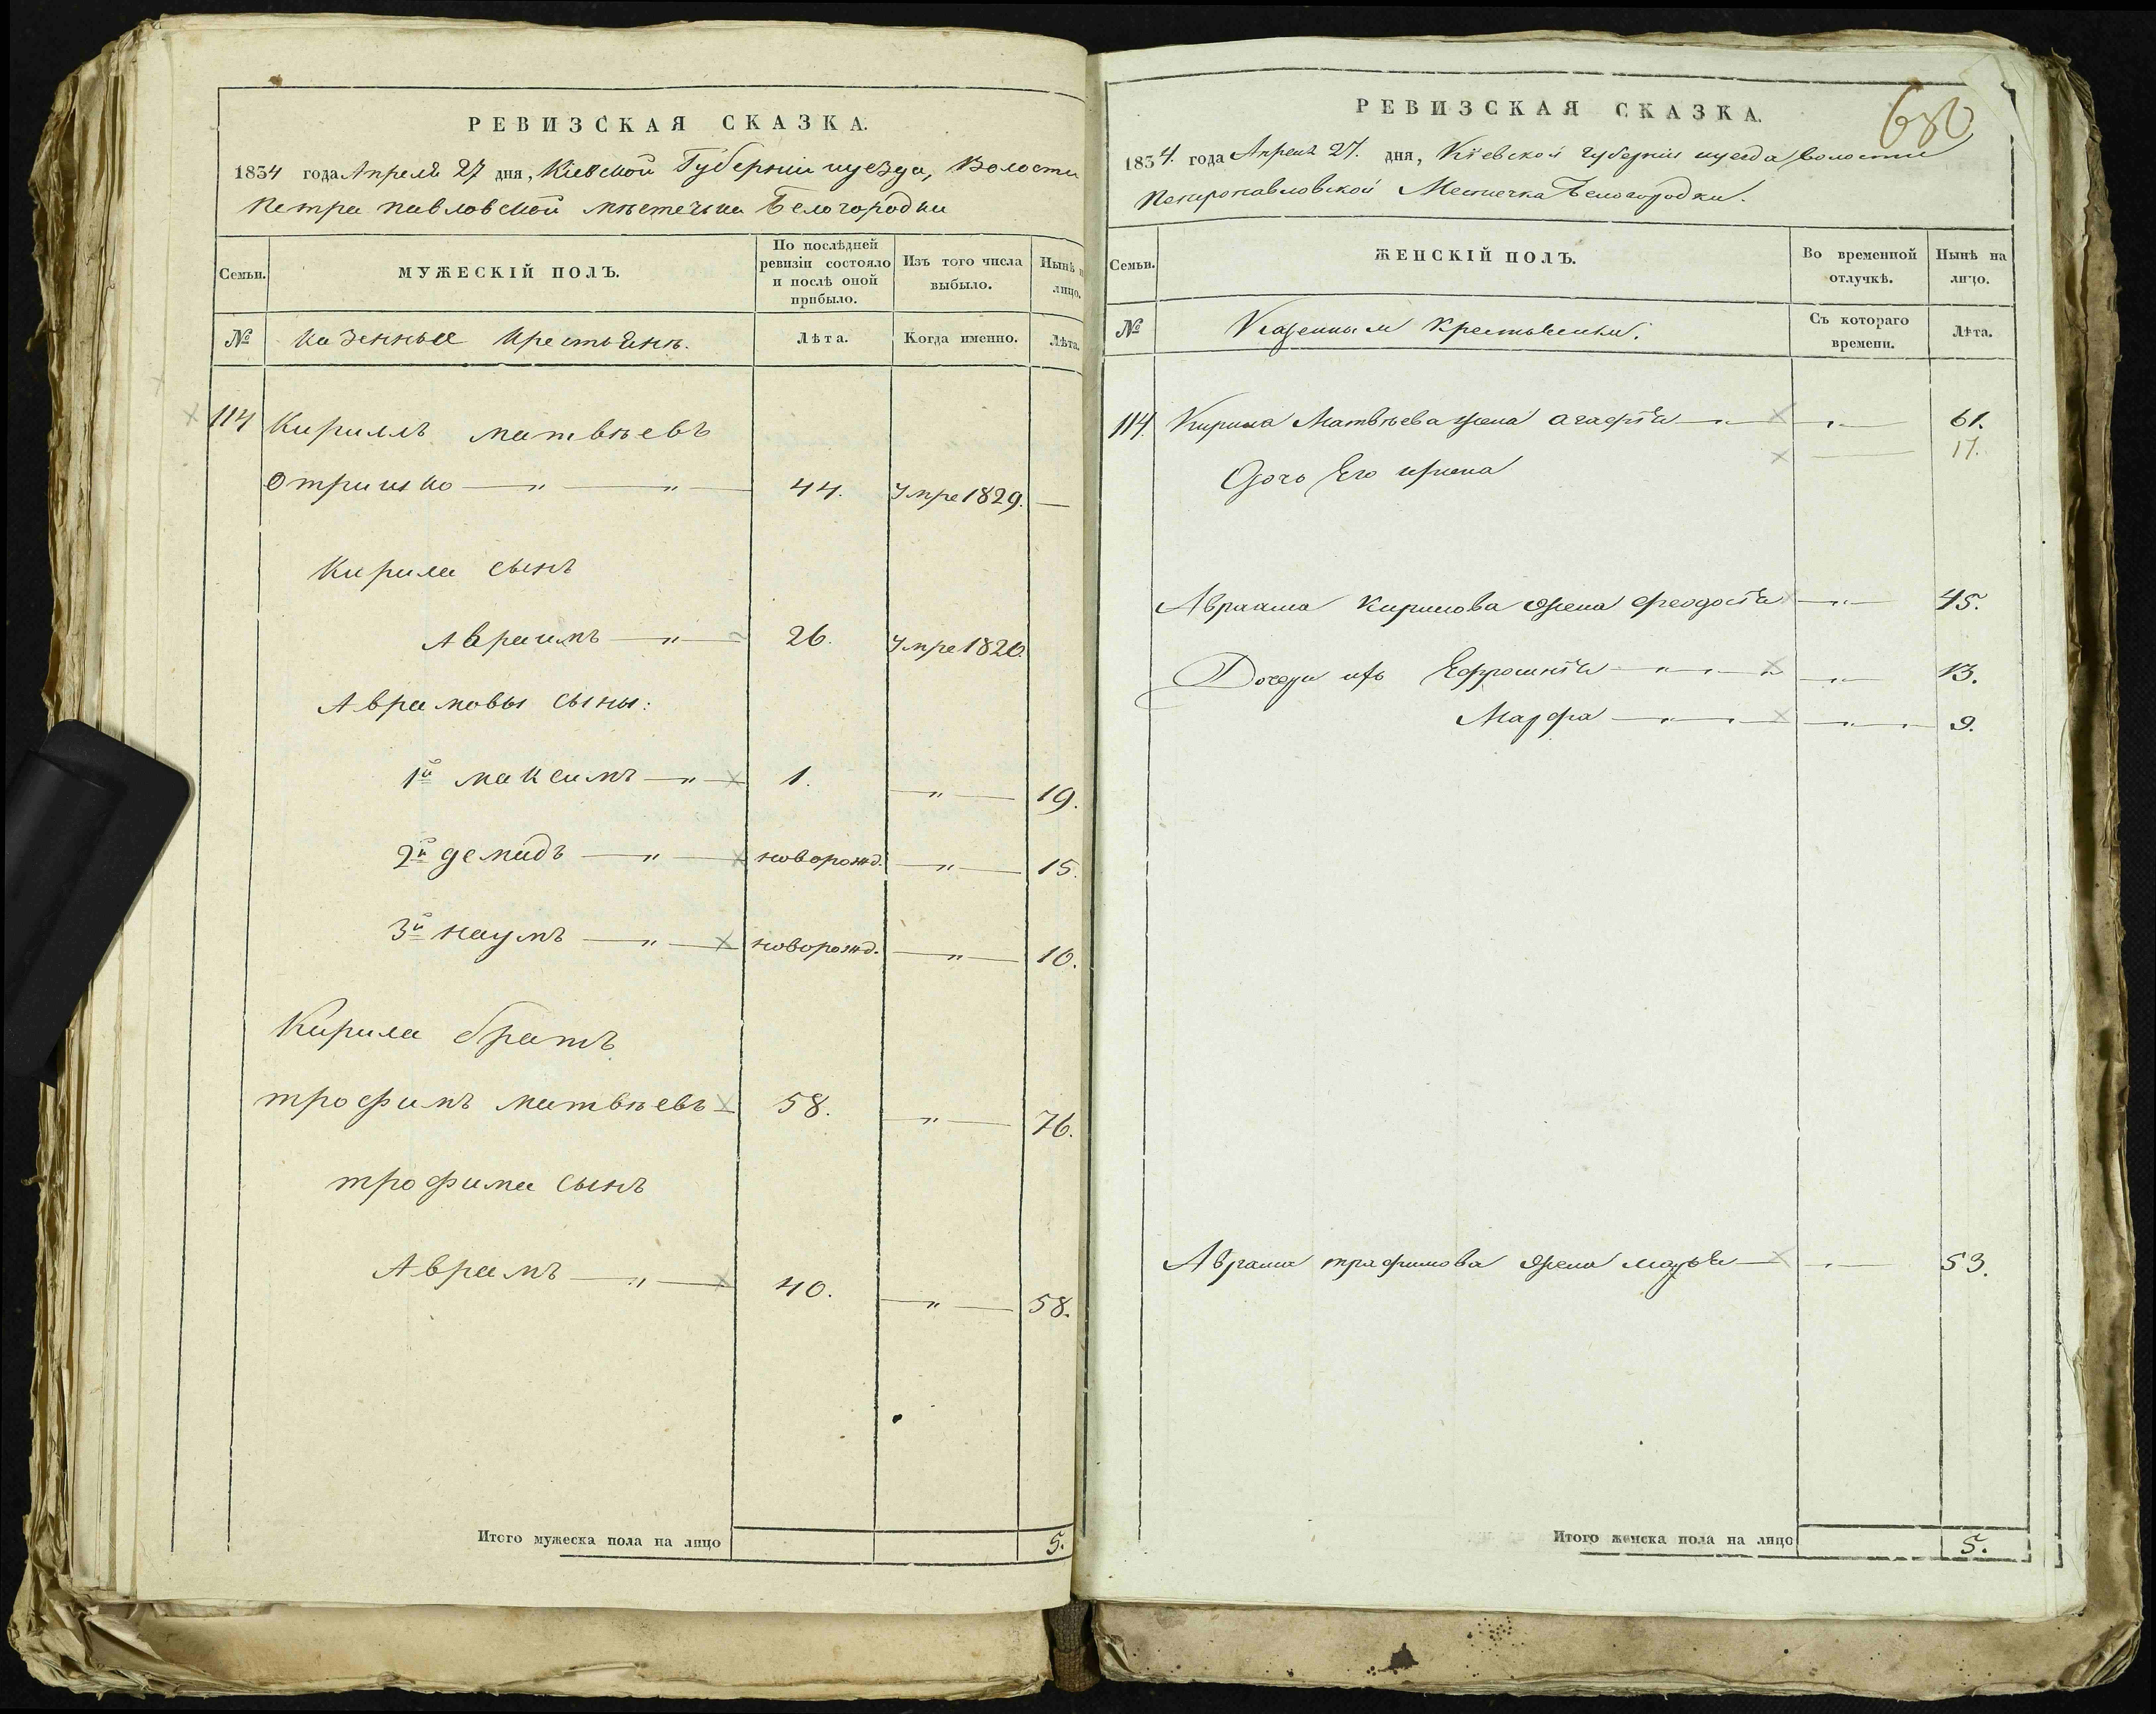 РЕВИЗСКАЯ СКАЗКА.
1834 года Апреля 27 дня, Киевской Губернии и уезда, Волости
Петра павловской мѣстечька Белогородки
Семьи.
МУЖЕСКІЙ ПОЛЪ.
По послѣдней ревизіи состояло и послѣ оной прибыло.
Изъ того числа выбыло.
Нынѣ н лицо.
№
казенные крестьянѣ.
Лѣта.
Когда именно.
Лѣта.
114 Кириллъ матвѣевъ
44. Умре 1829. —
Кирила сынъ
Авраимъ — " — 26. Умре 1820.
Аврамовы сыны:
1й максимъ — " — 1. — " — 19.
2й демидъ — " — новорожд. — " — 15.
3й наумъ — " — новорожд. — " — 10.
Кирила братъ
трофимъ матвѣевъ 58. — " — 76.
трофима сынъ
Аврамъ — " — 40. — " — 58.
Итого мужеска пола на лицо 5.
РЕВИЗСКАЯ СКАЗКА.
680
1834. года Апреля 27. дня, Кіевской губернии и уезда волости
Петропавловской Местечка Белогородки.
Семьи.
ЖЕНСКІЙ ПОЛЪ.
Во временной отлучкѣ.
Нынѣ на лицо.
№
Казенныи Крестьянки.
Съ котораго времени.
Лѣта.
114. Кирила Матвѣева жена агафія — " — 61.
Дочь Его ирина — 17.
Авраама Кирилова жена феодосія — " — 45.
Дочери ихъ Ефросинія — " — " — 13.
Марфа — " — " — 9.
Аврама трафимова жена марья — " — 53.
Итого женска пола на лицо 5.